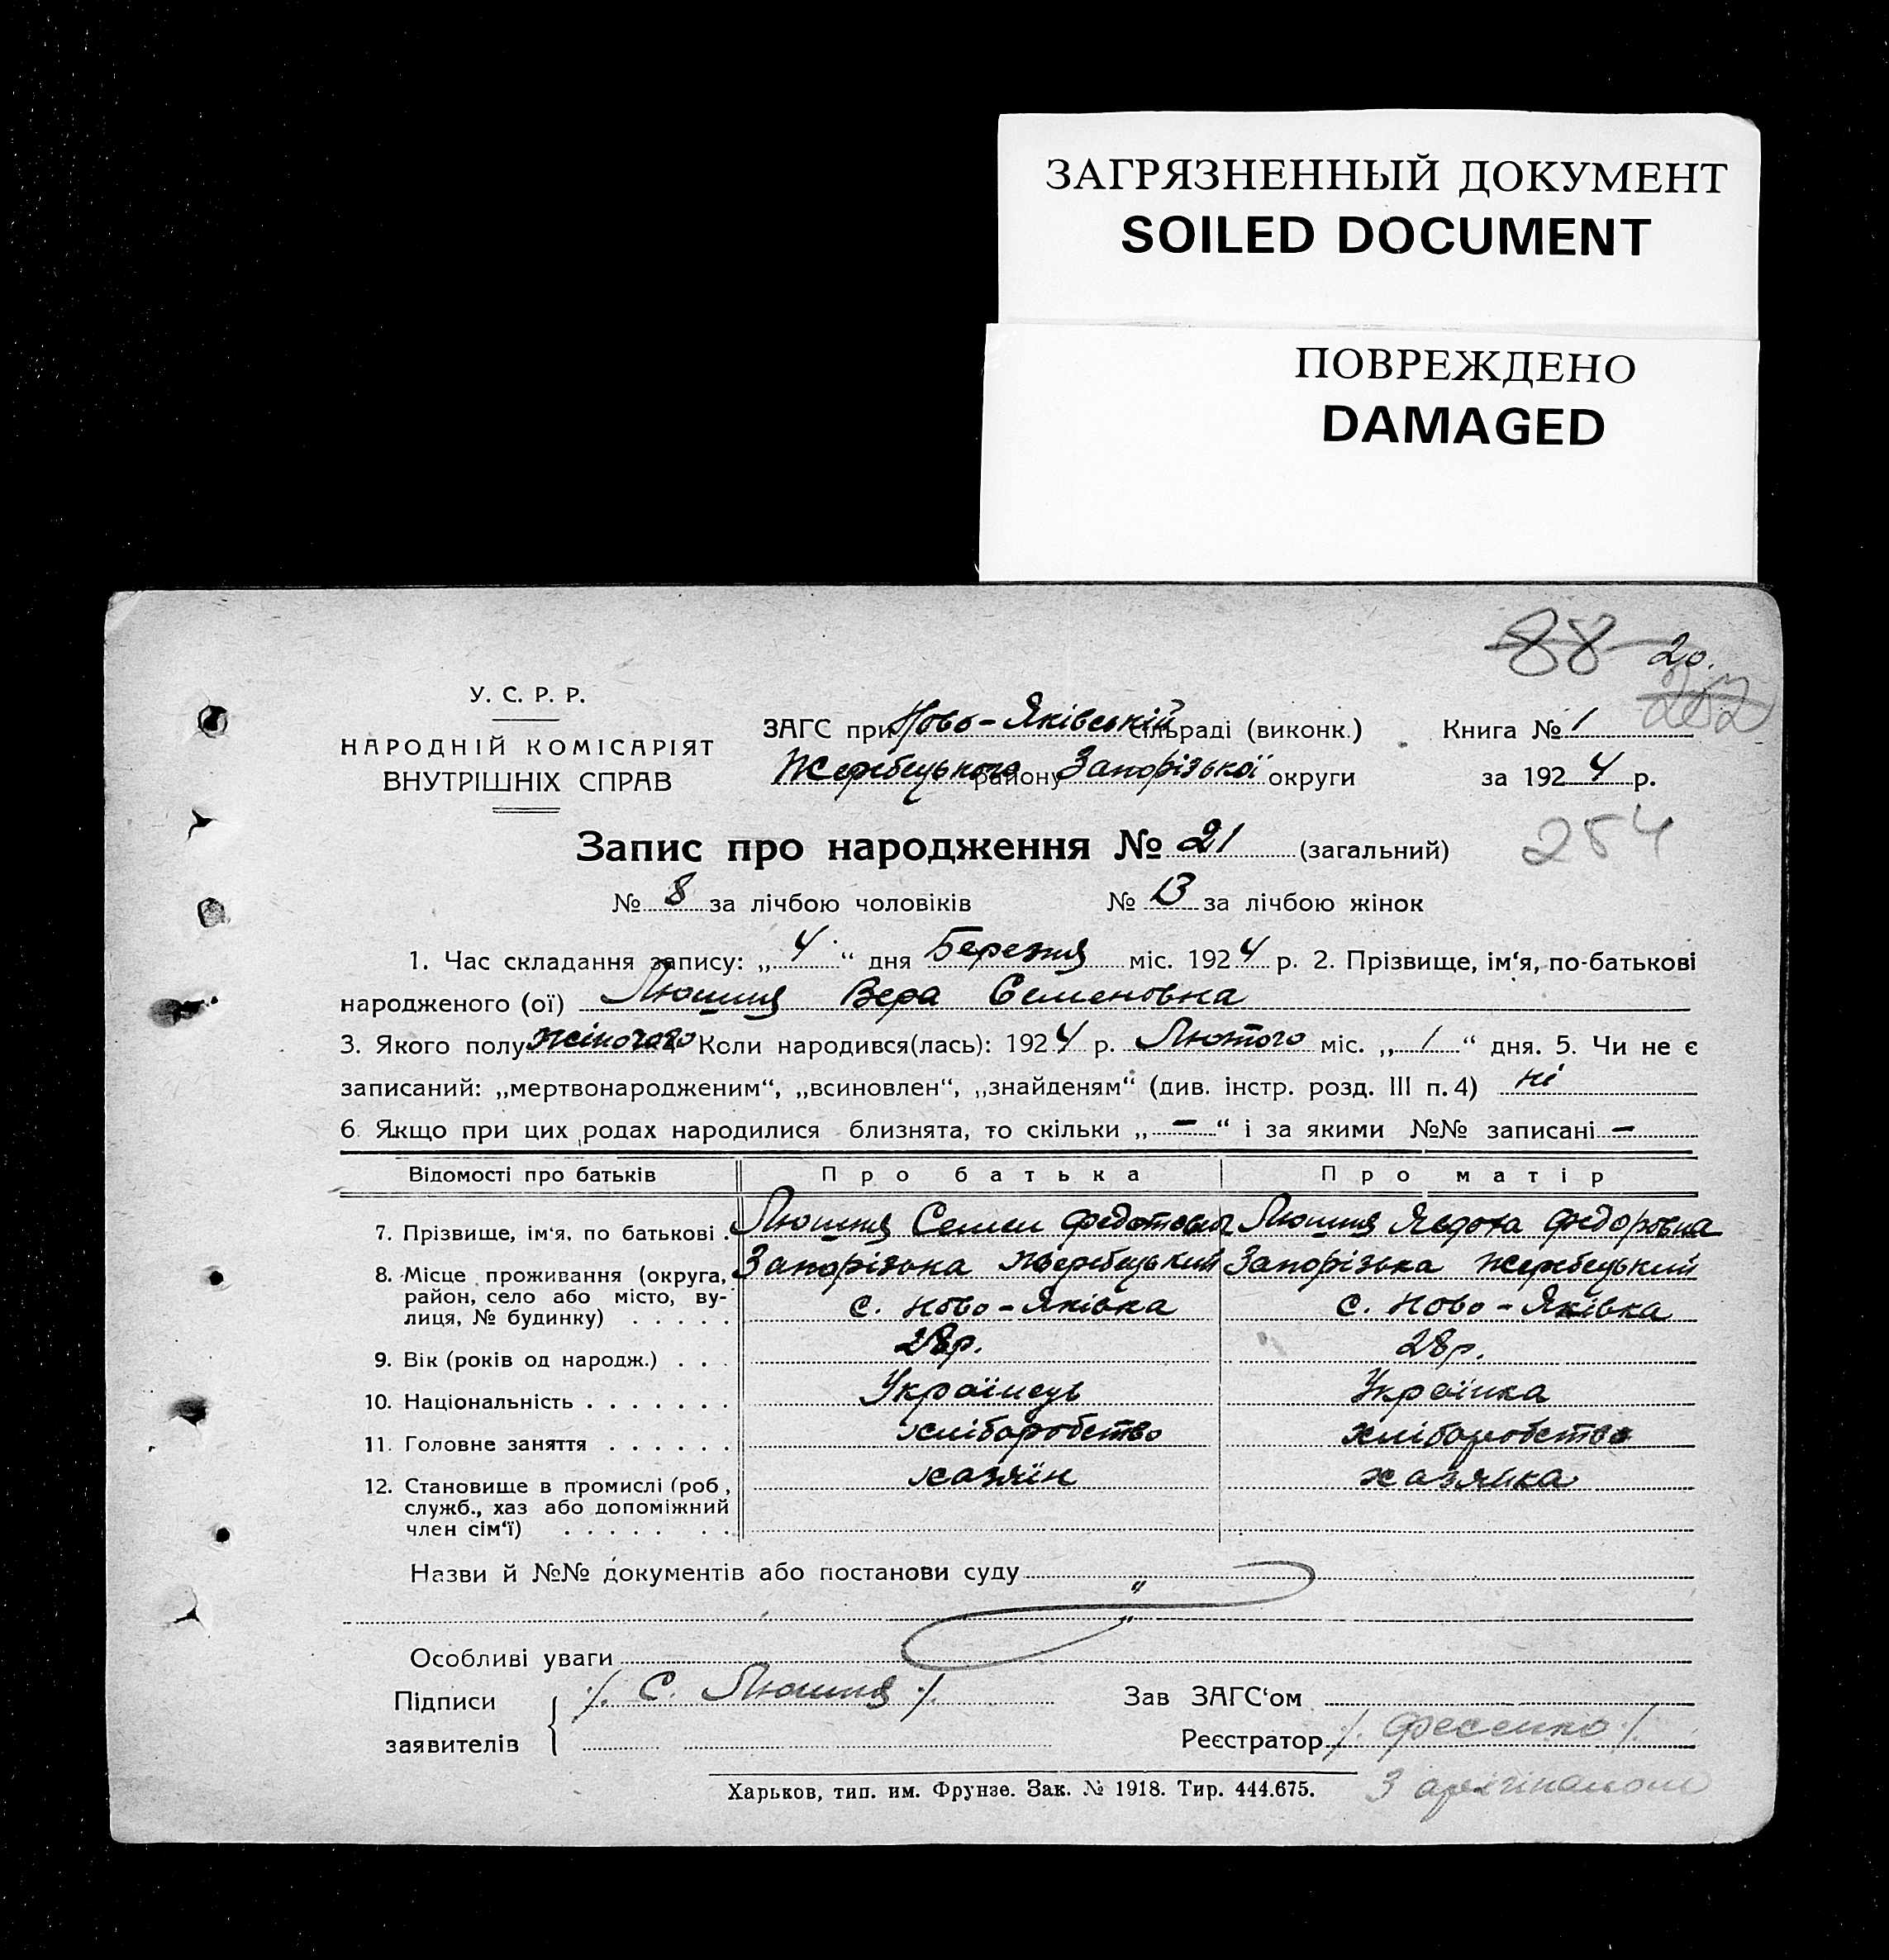 ЗАГРЯЗНЕННЫЙ ДОКУМЕНТ
SOILED DOCUMENT
ПОВРЕЖДЕНО
DAMAGED
88 20.
252
У. С. Р. Р.
НАРОДНІЙ КОМІСАРІЯТ
ВНУТРІШНІХ СПРАВ
ЗАГС при Ново-Яківській сільраді (виконк.) Книга № 1
Жеребецького району Запорізької округи за 1924 р.
Запис про народження № 21 (загальний)
254
№ 8 за лічбою чоловіків № 13 за лічбою жінок
1. Час складання запису: „4“ дня Березня міс. 1924 р. 2. Прізвище, ім‘я, по-батькові
народженого (ої) Люшня Вера Семеновна
3. Якого полу жіночого Коли народився(лась): 1924 р. Лютого міс. „1“ дня. 5. Чи не є
записаний: „мертвонародженим“, „всиновлен“, „знайденям“ (див. інстр. розд. III п. 4) ні
6. Якщо при цих родах народилися близнята, то скільки „—“ і за якими №№ записані —
Відомості про батьків Про батька Про матір
7. Прізвище, ім‘я, по батькові . Люшня Семен Федотович Люшня Явдоха Федоровна
8. Місце проживання (округа, Запорізька Жеребецький Запорізька Жеребецький
район, село або місто, ву-
лиця, № будинку) . . . . . с. Ново-Яківка с. Ново-Яківка
9. Вік (років од народж.) . . . 28 р. 28 р.
10. Національність . . . . . . . Українець Українка
11. Головне заняття . . . . . . хліборобство хліборобство
12. Становище в промислі (роб, хазяїн хазяйка
служб., хаз або допоміжний
член сім‘ї) . . . . . . .
Назви й №№ документів або постанови суду
Особливі уваги
Підписи /. С. Люшня ./ Зав ЗАГС‘ом
заявителів Реєстратор /. Фесенко ./
Харьков, тип. им. Фрунзе. Зак. № 1918. Тир. 444.675.
З оригіналом